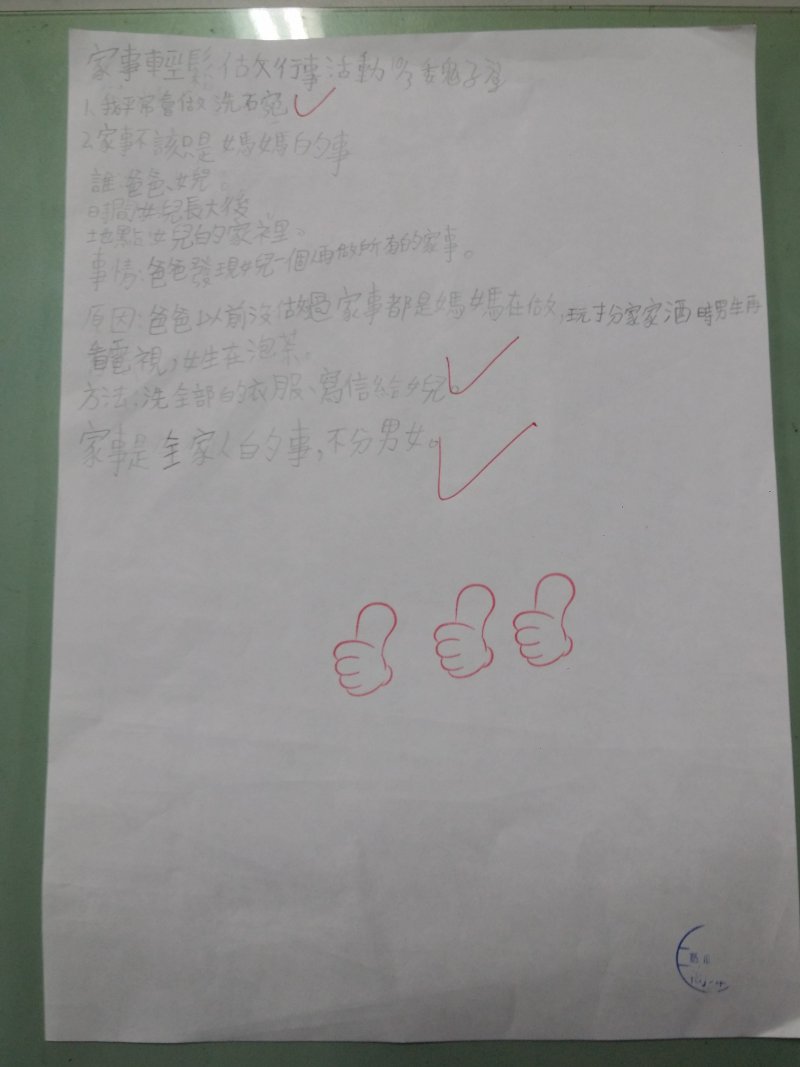 家事輕鬆做行事活動 10/3
1.我平常會做洗碗
2.家事不該只是媽媽的事
誰:爸爸、女兒。
時間:女兒長大後
地點:女兒的家裡。
事情:爸爸發現女兒一個人再做所有的家事。
原因:爸爸以前沒做過家事都是媽媽在做,玩扮家家酒時男生再
看電視,女生在泡茶。
方法:洗全部的衣服、寫信給女兒。
家事是全家人的事,不分男女。